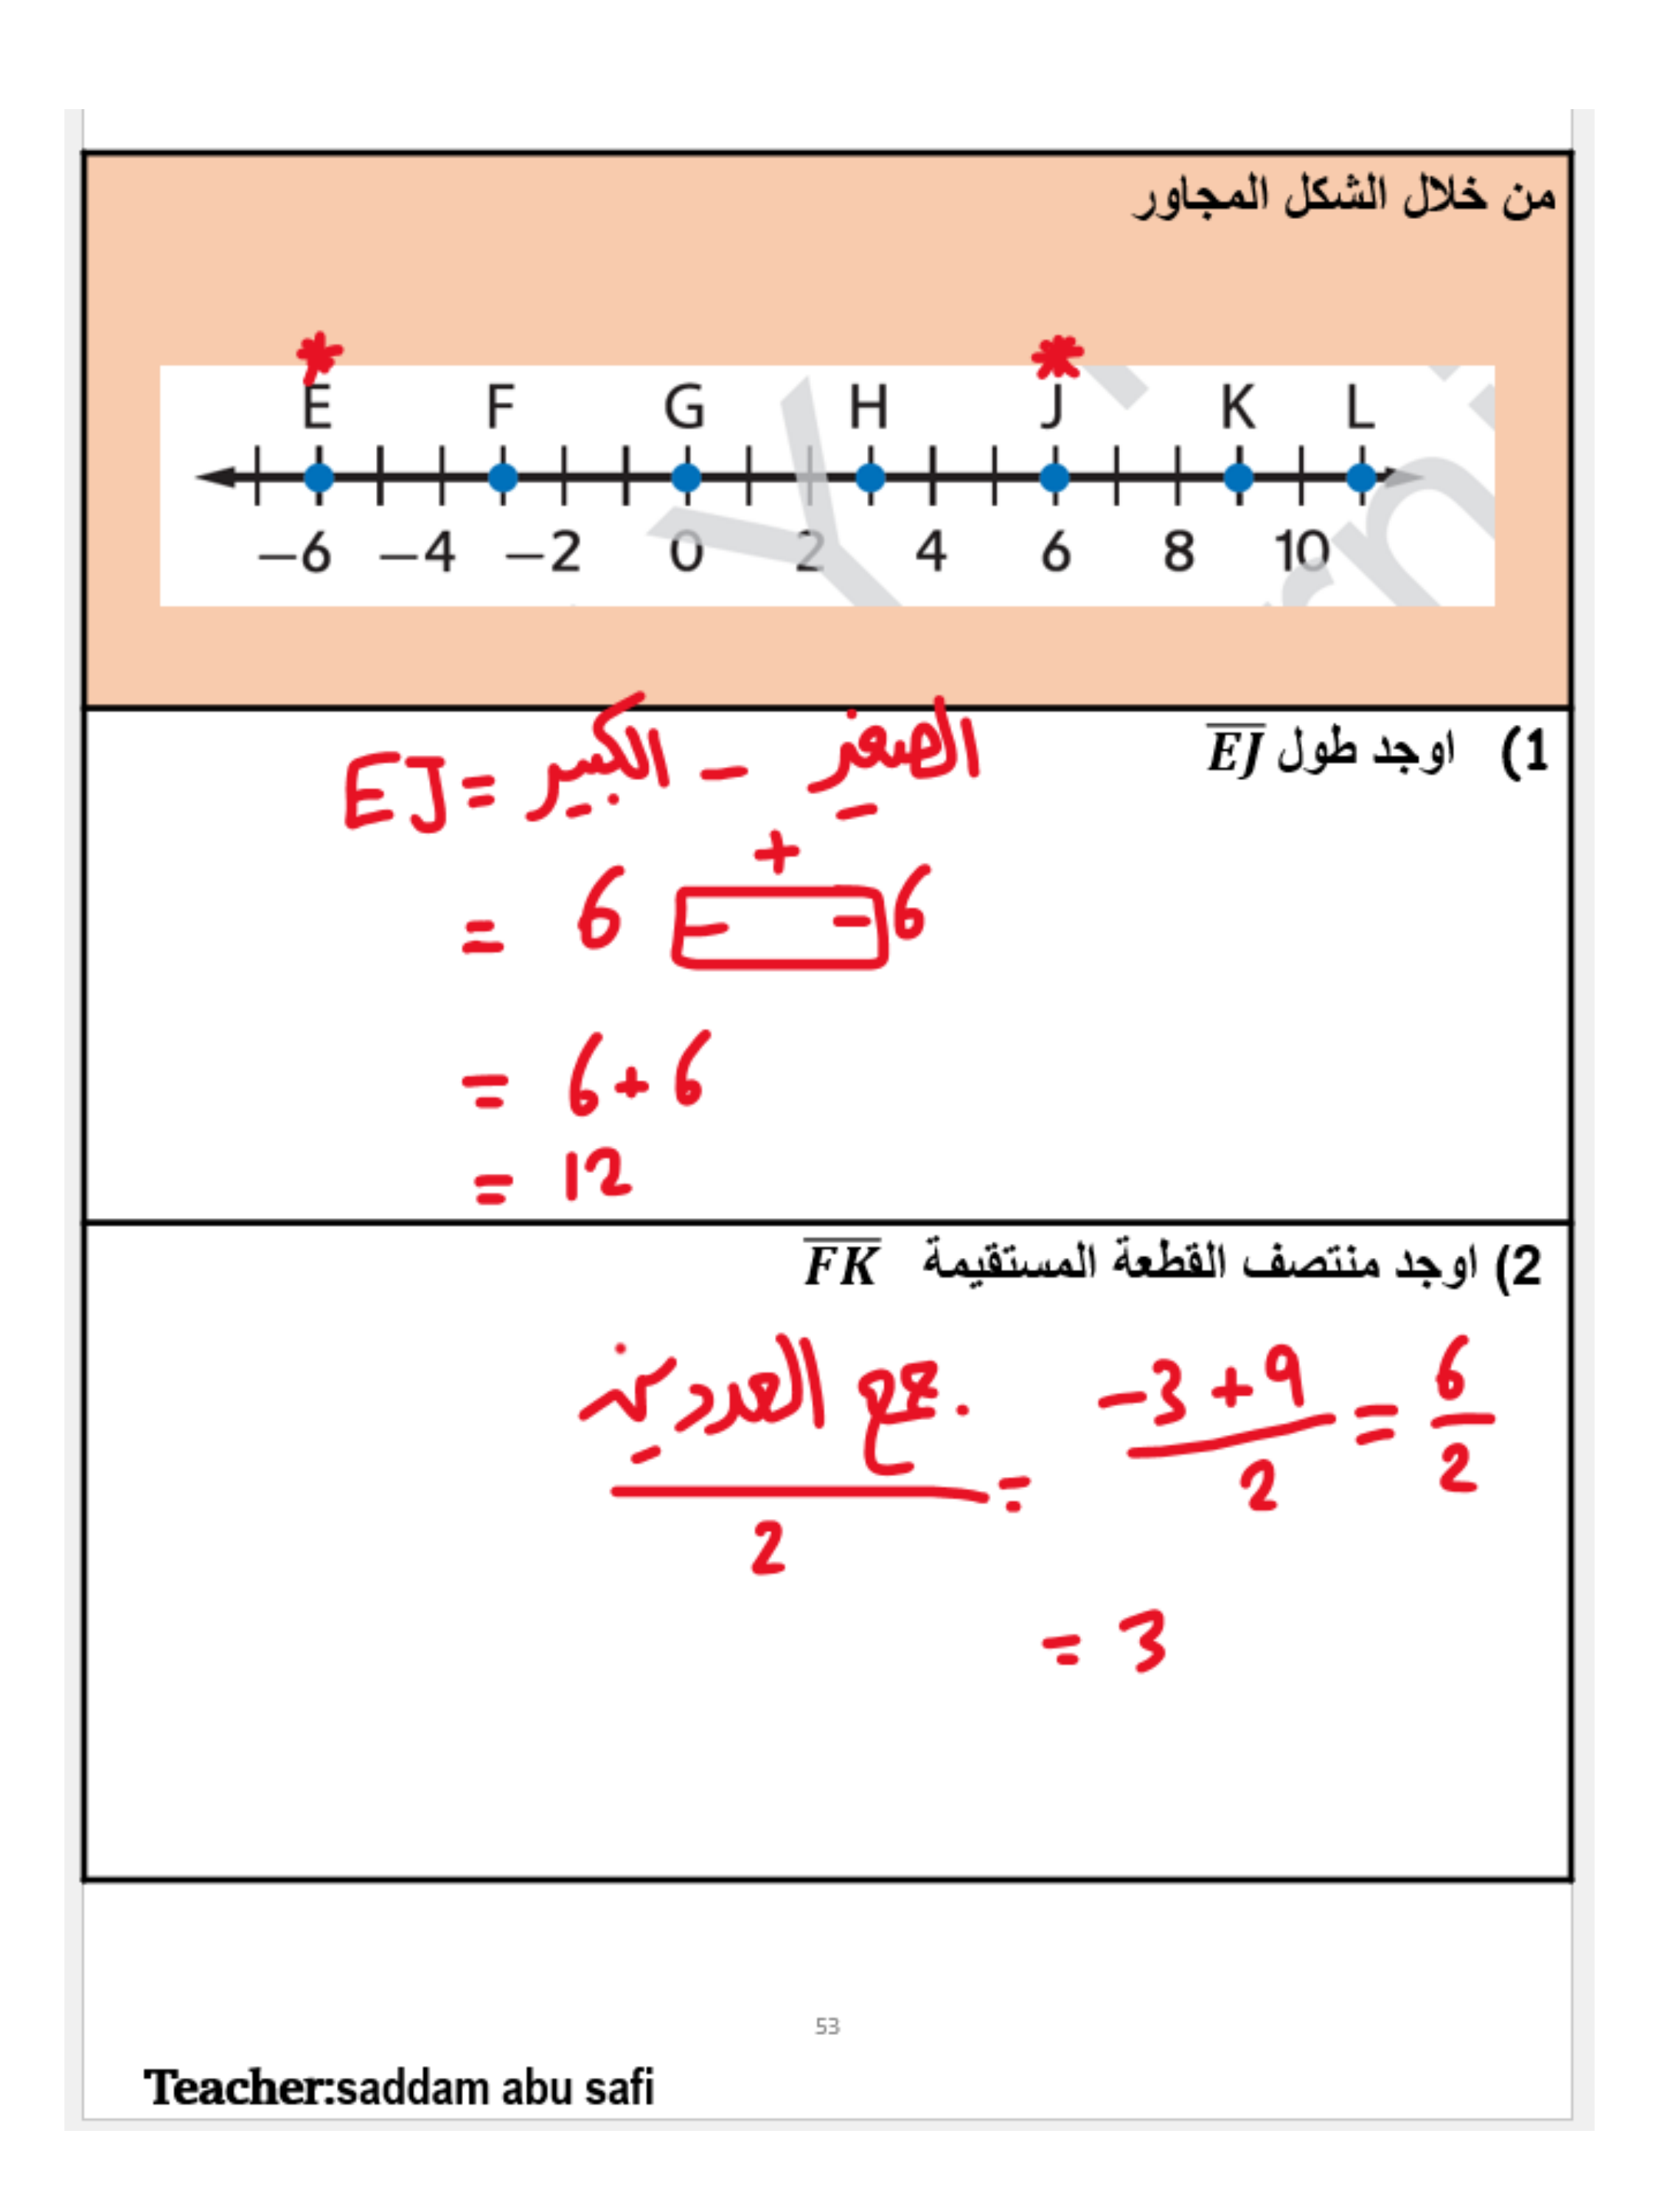 من خلال الشكل المجاور
E F G H J K L
−6 −4 −2 0 2 4 6 8 10
1) اوجد طول EJ
EJ = الكبير − الصغير
+
= 6 − −6
= 6 + 6
= 12
2) اوجد منتصف القطعة المستقيمة FK
جمع العددين / 2 = −3 + 9 / 2 = 6 / 2
= 3
53
Teacher:saddam abu safi